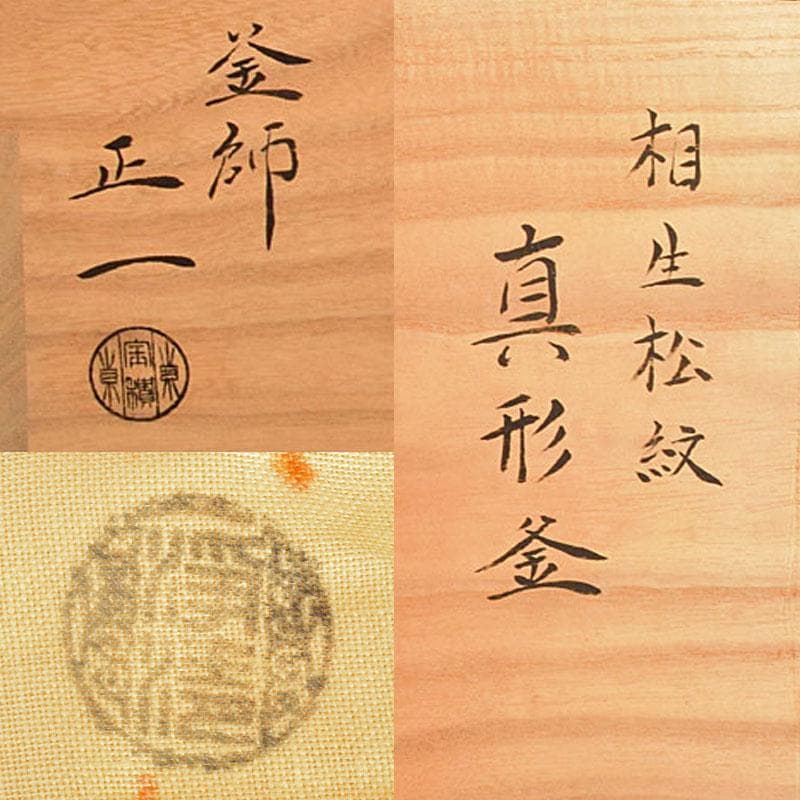 釜師
正一
相生松紋
真形釜